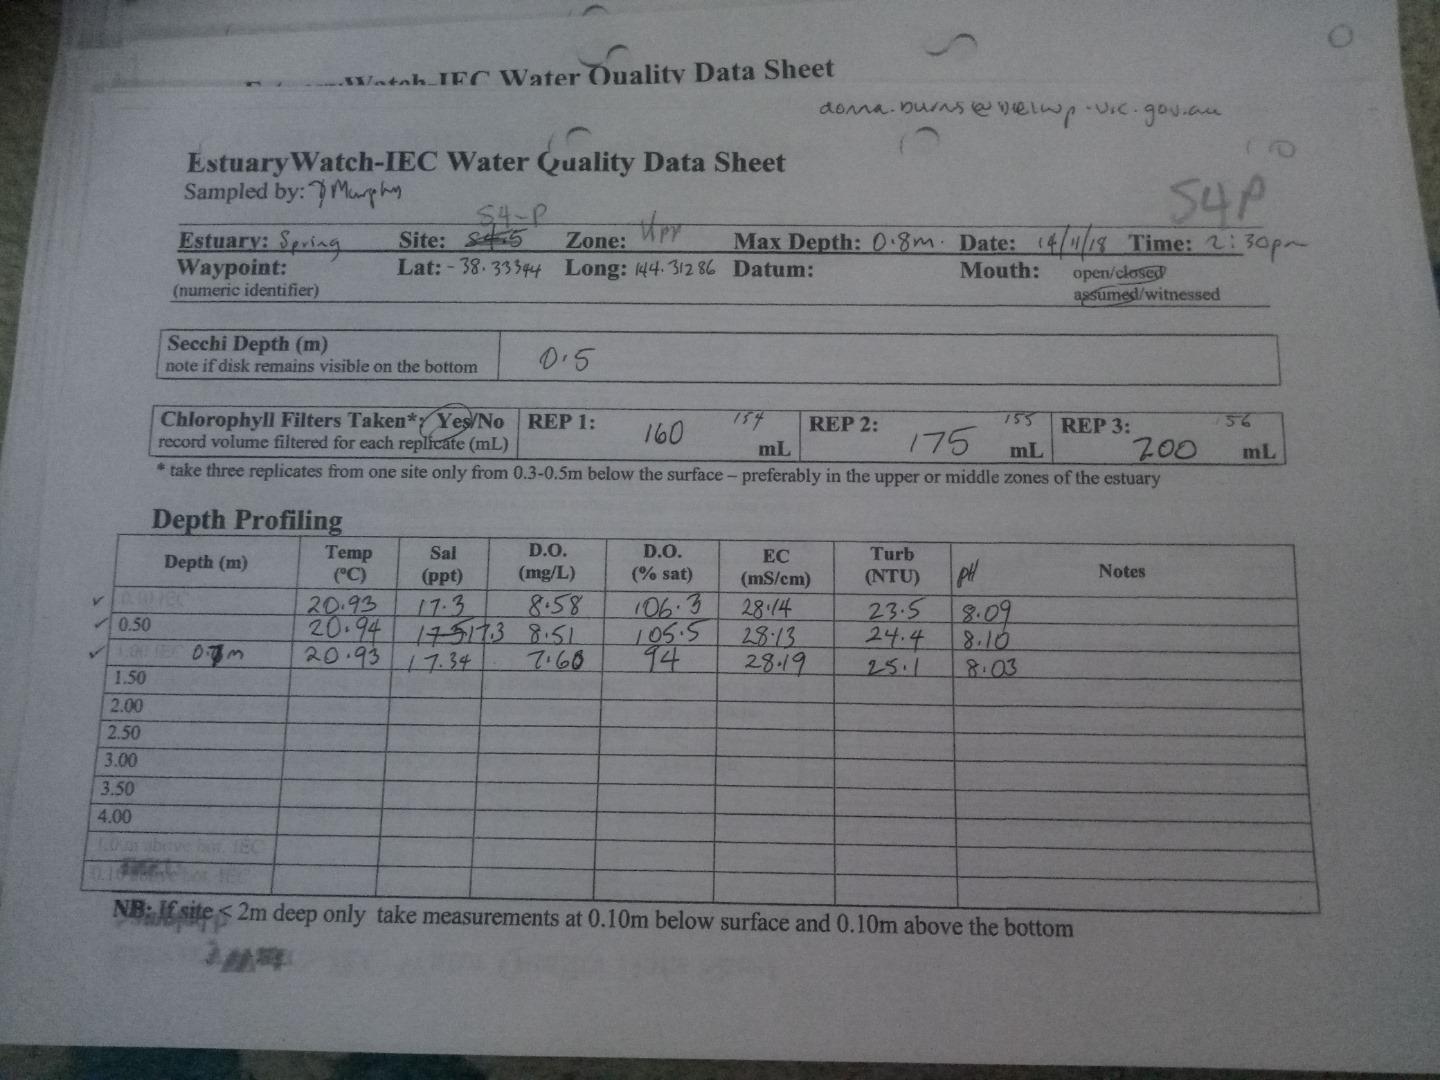 Water Quality Data Sheet
EstuaryWatch-IEC Water Quality Data Sheet
Sampled by: Murphy
S4P
S4-P
Estuary: Spring Site: S4.5 Zone: Upp Max Depth: 0.8m. Date: 14/11/18 Time: 2:30pm
Waypoint: Lat: -38.33344 Long: 144.31286 Datum: Mouth: open/closed
(numeric identifier) assumed/witnessed
Secchi Depth (m) 0.5
note if disk remains visible on the bottom
Chlorophyll Filters Taken*: Yes/No REP 1: 160 154 mL REP 2: 175 155 mL REP 3: 200 156 mL
record volume filtered for each replicate (mL)
* take three replicates from one site only from 0.3-0.5m below the surface – preferably in the upper or middle zones of the estuary
Depth Profiling
Depth (m) Temp (°C) Sal (ppt) D.O. (mg/L) D.O. (% sat) EC (mS/cm) Turb (NTU) pH Notes
0.10 IEC 20.93 17.3 8.58 106.3 28.14 23.5 8.09
0.50 20.94 17.3 8.51 105.5 28.13 24.4 8.10
1.00 IEC 0.7m 20.93 17.34 7.60 94 28.19 25.1 8.03
1.50
2.00
2.50
3.00
3.50
4.00
1.0m above bot. IEC
0.10 above bot. IEC
NB: If site < 2m deep only take measurements at 0.10m below surface and 0.10m above the bottom